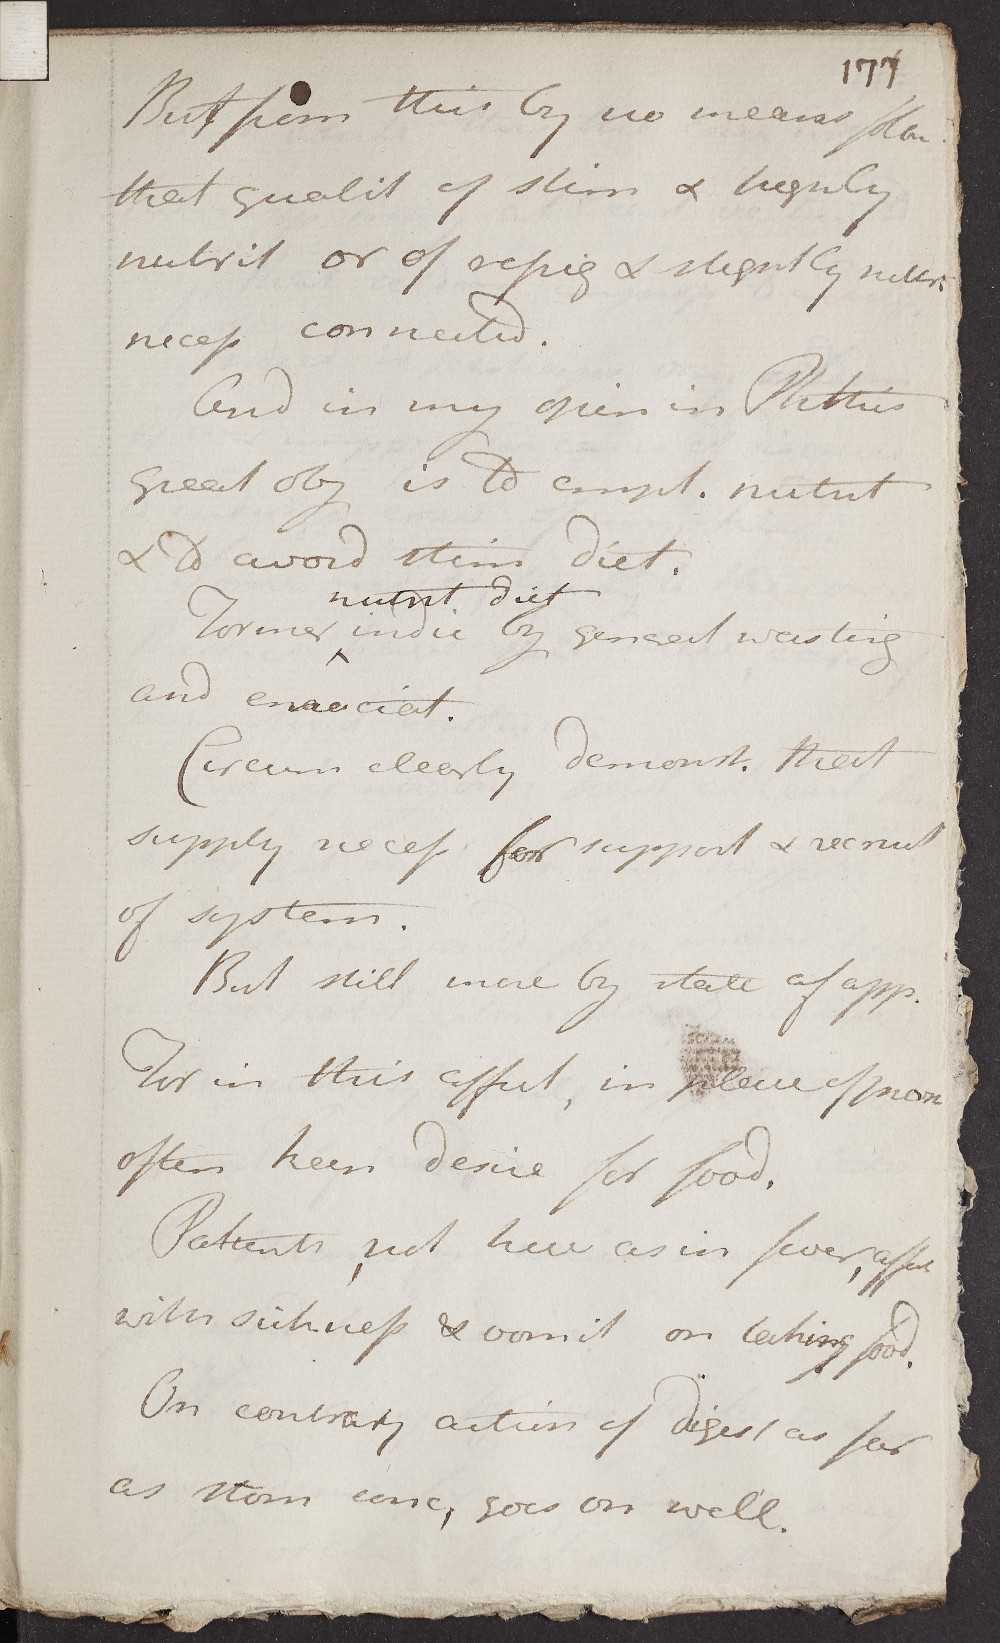 177
But from this by no means follow
that qualit of stim & highly
nutrit or of refrig & slightly nutr.
necess connected.
And in my opin in Phthis
great obj is to empl. nutrit
& to avoid stim diet.
nutrit diet
Former indic by general wasting
and emaciat.
Circum clearly demonst. that
supply necess for support & recruit
of system.
But still more by state of app.
For in this affect, in place of
often keen desire for food.
Patients, not here as in fever, affect
with sickness & vomit on taking food.
On contrary action of digest as far
as stom conc, goes on well.